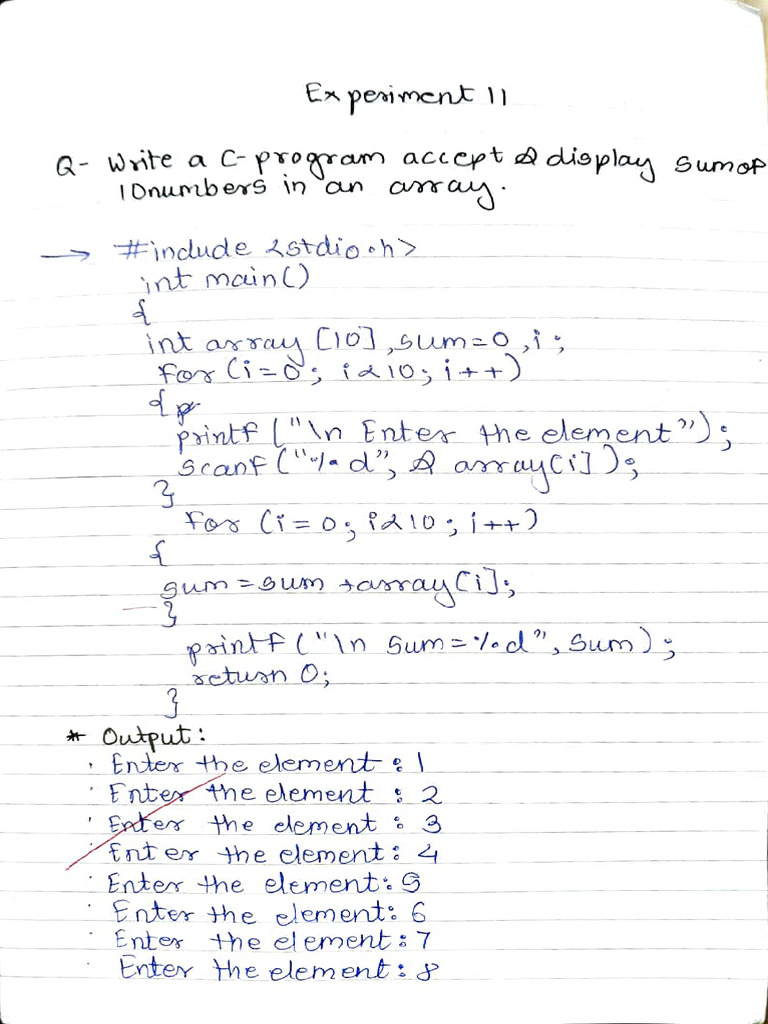 Experiment 11
Q- Write a C-program accept & display sum of
10numbers in an array.
→ #include <stdio.h>
int main()
{
int array [10], sum=0, i;
for (i=0; i<10; i++)
{
printf ("\n Enter the element");
scanf ("%d", & array[i]);
}
for (i=0; i<10; i++)
{
sum = sum + array[i];
}
printf ("\n Sum=%d", sum);
return 0;
}
* Output:
Enter the element : 1
Enter the element : 2
Enter the element : 3
Enter the element : 4
Enter the element: 5
Enter the element: 6
Enter the element: 7
Enter the element: 8